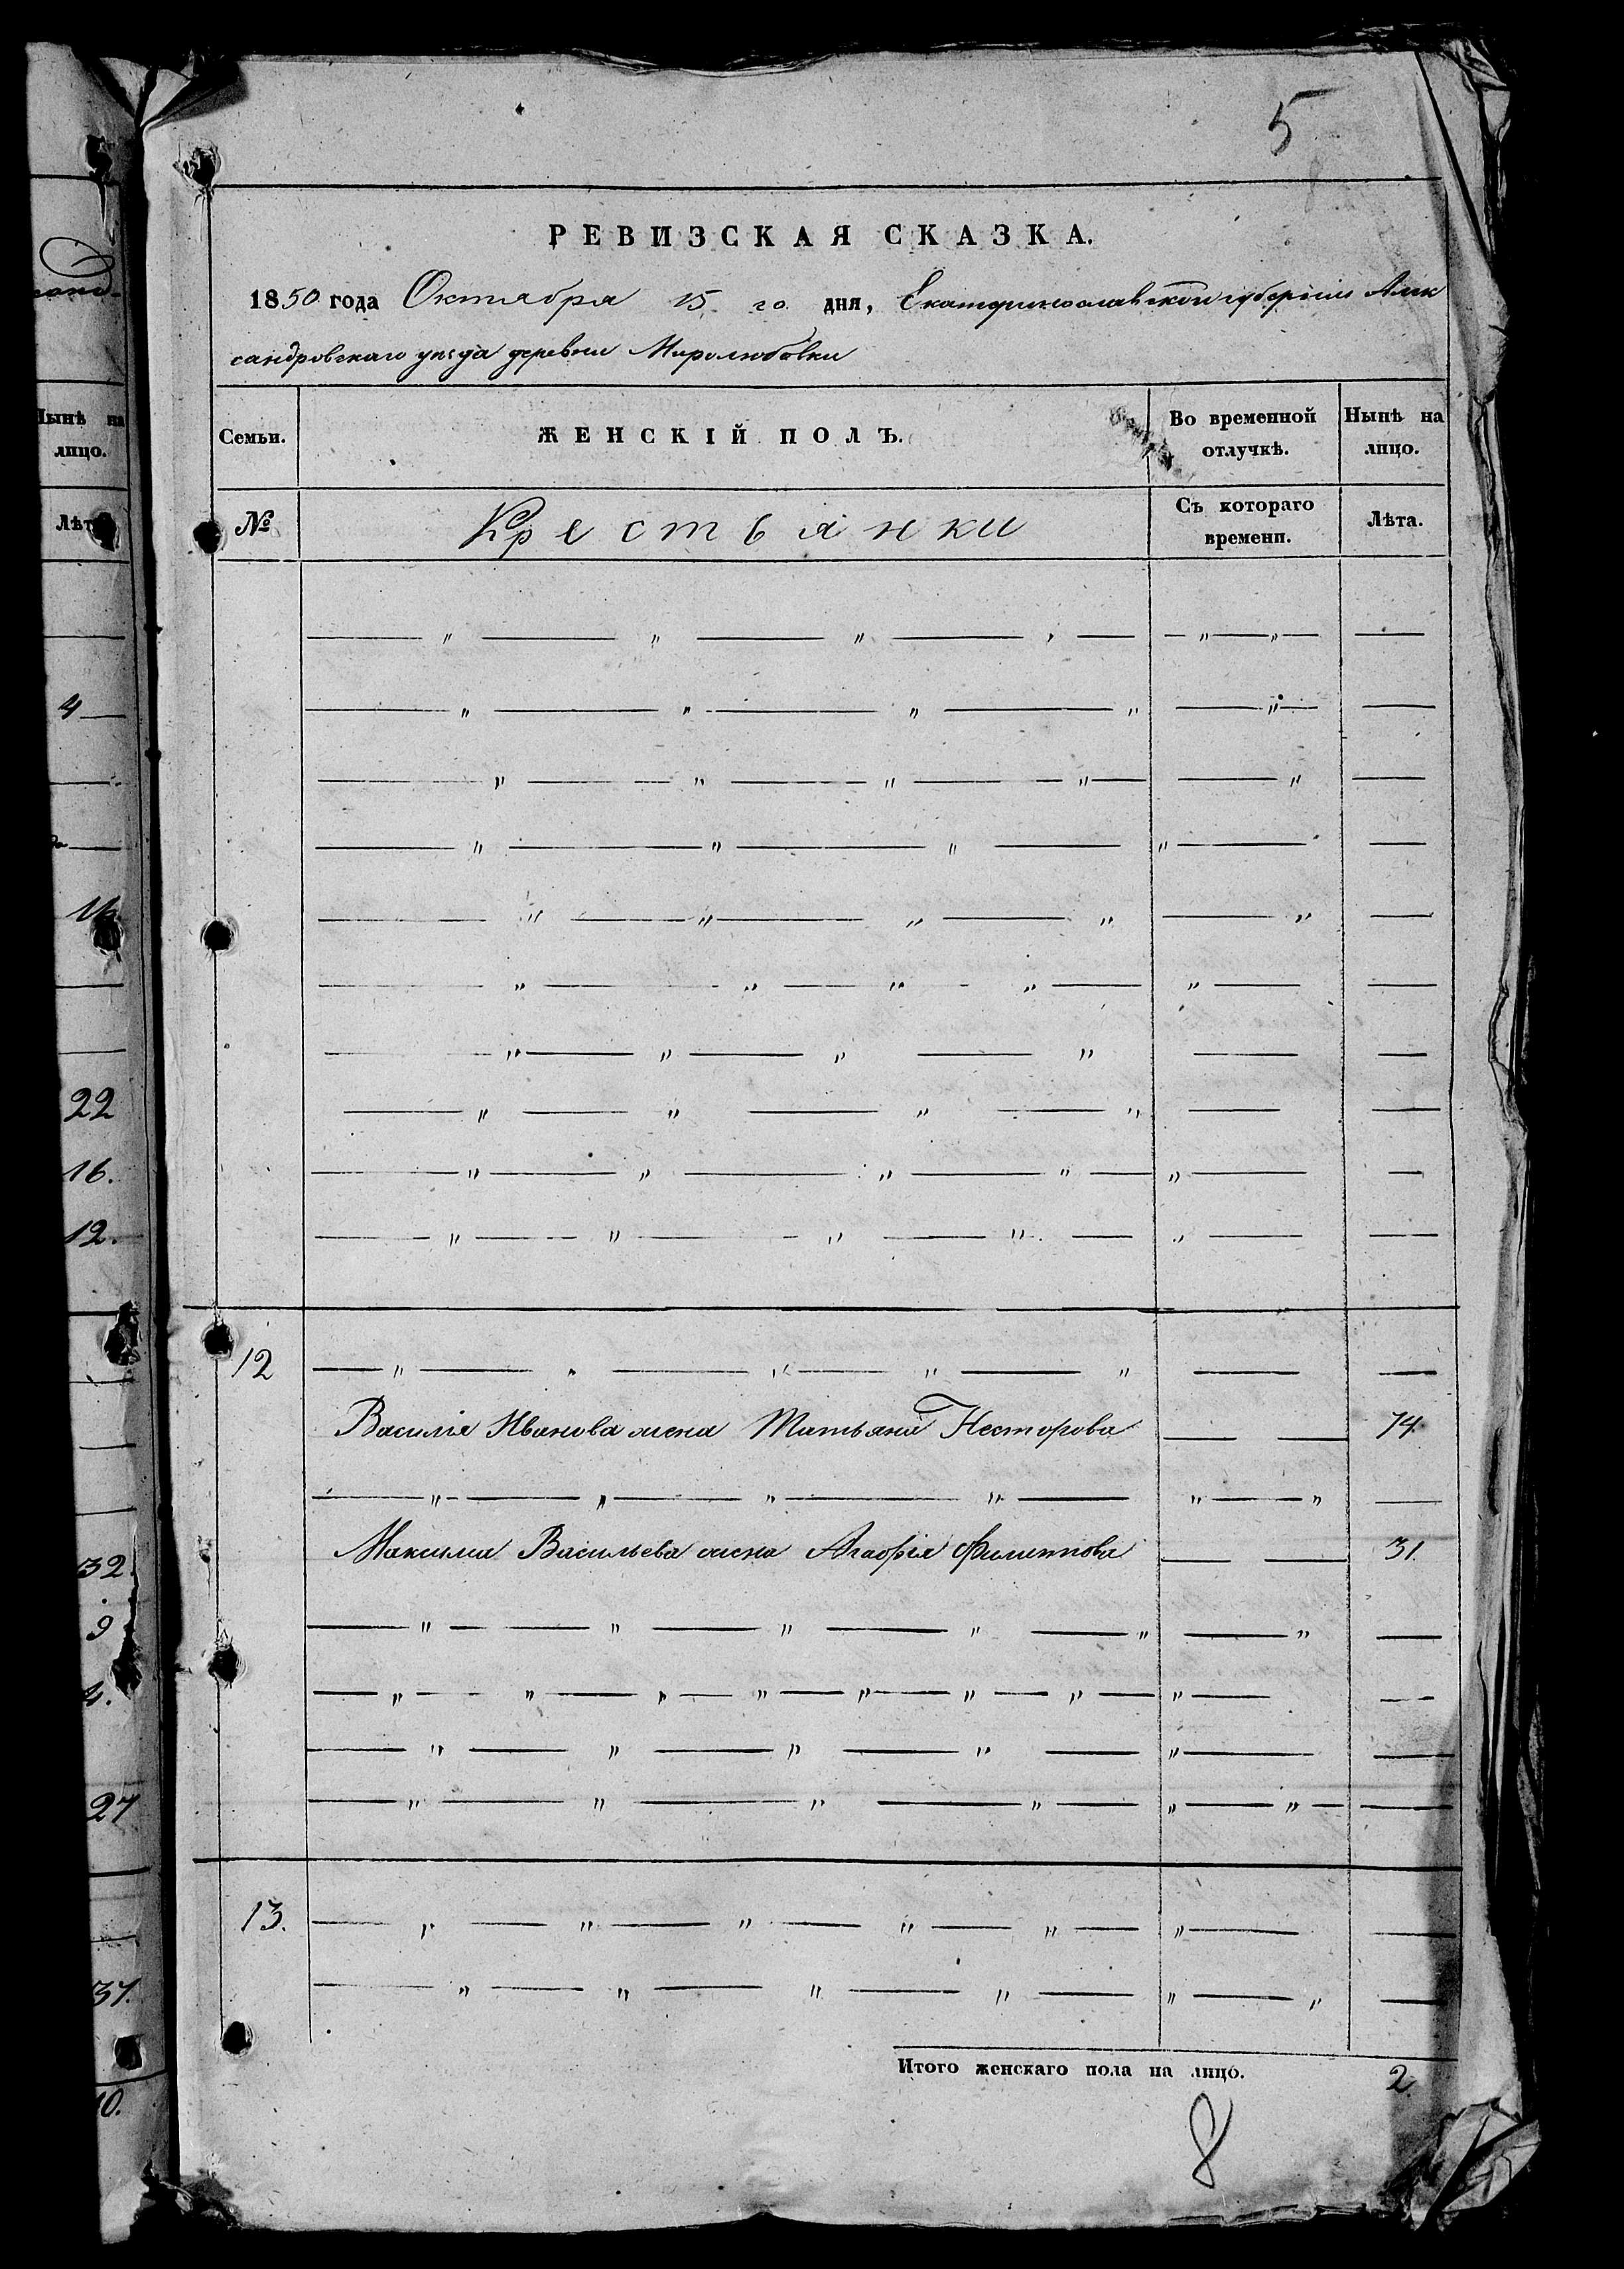 5
РЕВИЗСКАЯ СКАЗКА.
1850 года Октября 15 го дня, Екатеринославской губернии Алек
сандровскаго уезда деревни Миролюбовки
Семьи. ЖЕНСКІЙ ПОЛЪ. Во временной отлучкѣ. Нынѣ на лицо.
№ Крестьянки Съ котораго времени. Лѣта.
12
Василія Иванова жена Татьяна Несторова 74.
Максима Васильева жена Агафія Филиппова 31.
13.
Итого женскаго пола на лицо. 2
8
Нынѣ на
лицо.
Лѣт
4
16
22
16.
12.
32.
9
4.
27
37.
0.